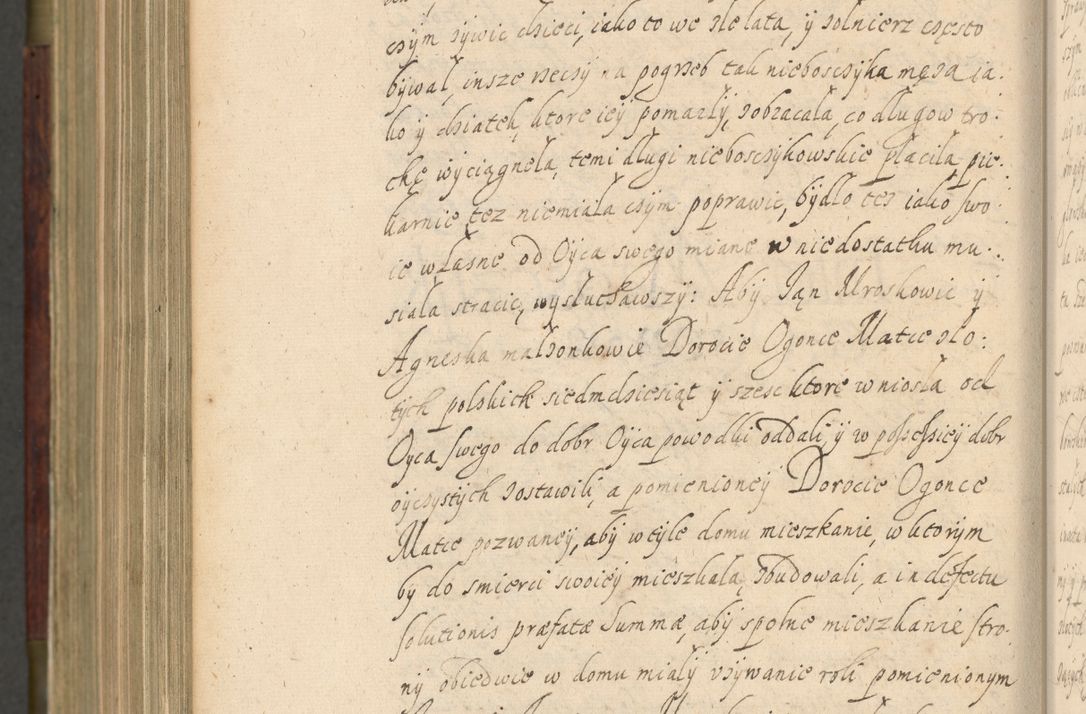 czym zywic dzieci, iako to we złe lata, ÿ zołnierz często
bÿwał, insze rzeczÿ na pogrzeb tak nieboszczÿka męza ia:
ko ÿ dziatek, ktore ieÿ pomarłÿ, zobracała, co dlugow tro:
chę wÿciągnęła, temi dlugi nieboszczÿkowskie płaciła, pie:
karnie tez niemiała czÿm poprawic, bÿdło tez iako swo
ie własne od Oÿca swego miane w niedostatku mu:
siała stracic, wÿsłuchawszÿ: Abÿ Jąn Mroskowic ÿ
Agneska małzonkowie Dorocie Ogonce Matce zło:
tÿch polskich siedmdziesiąt ÿ szesc ktore wniosła od
Oÿca swego do dobr Oÿca powodki oddali, ÿ w possessieÿ dobr
oÿczÿstÿch zostawili, a pomienioneÿ Dorocie Ogonce
Matce pozwaneÿ, abÿ wtÿle domu mieszkanie, w ktorÿm
bÿ do smierci swoieÿ mieszkała, zbudowali, a in defectu
solutionis præfatæ Summæ, abÿ społne mieszkanie stro:
nÿ obiedwie w domu miałÿ vzÿwanie roli pomienionÿm